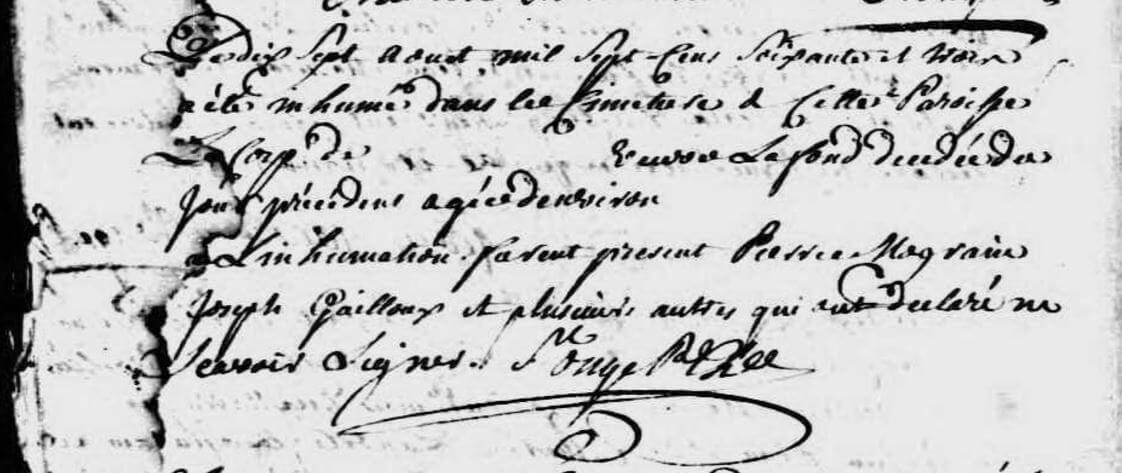 Le dix sept aout mil sept-cens soixante et trois
a été inhumé dans lee Cimetiere de Cette Paroisse
Le Corps de veuve Lafond decedée du
jour précédent agée denviron
a Linhumation furent present Pierre Magrain
Joseph Gailloux et plusieurs autres qui ont declaré ne
scavoir Signer. St Onge Ptre